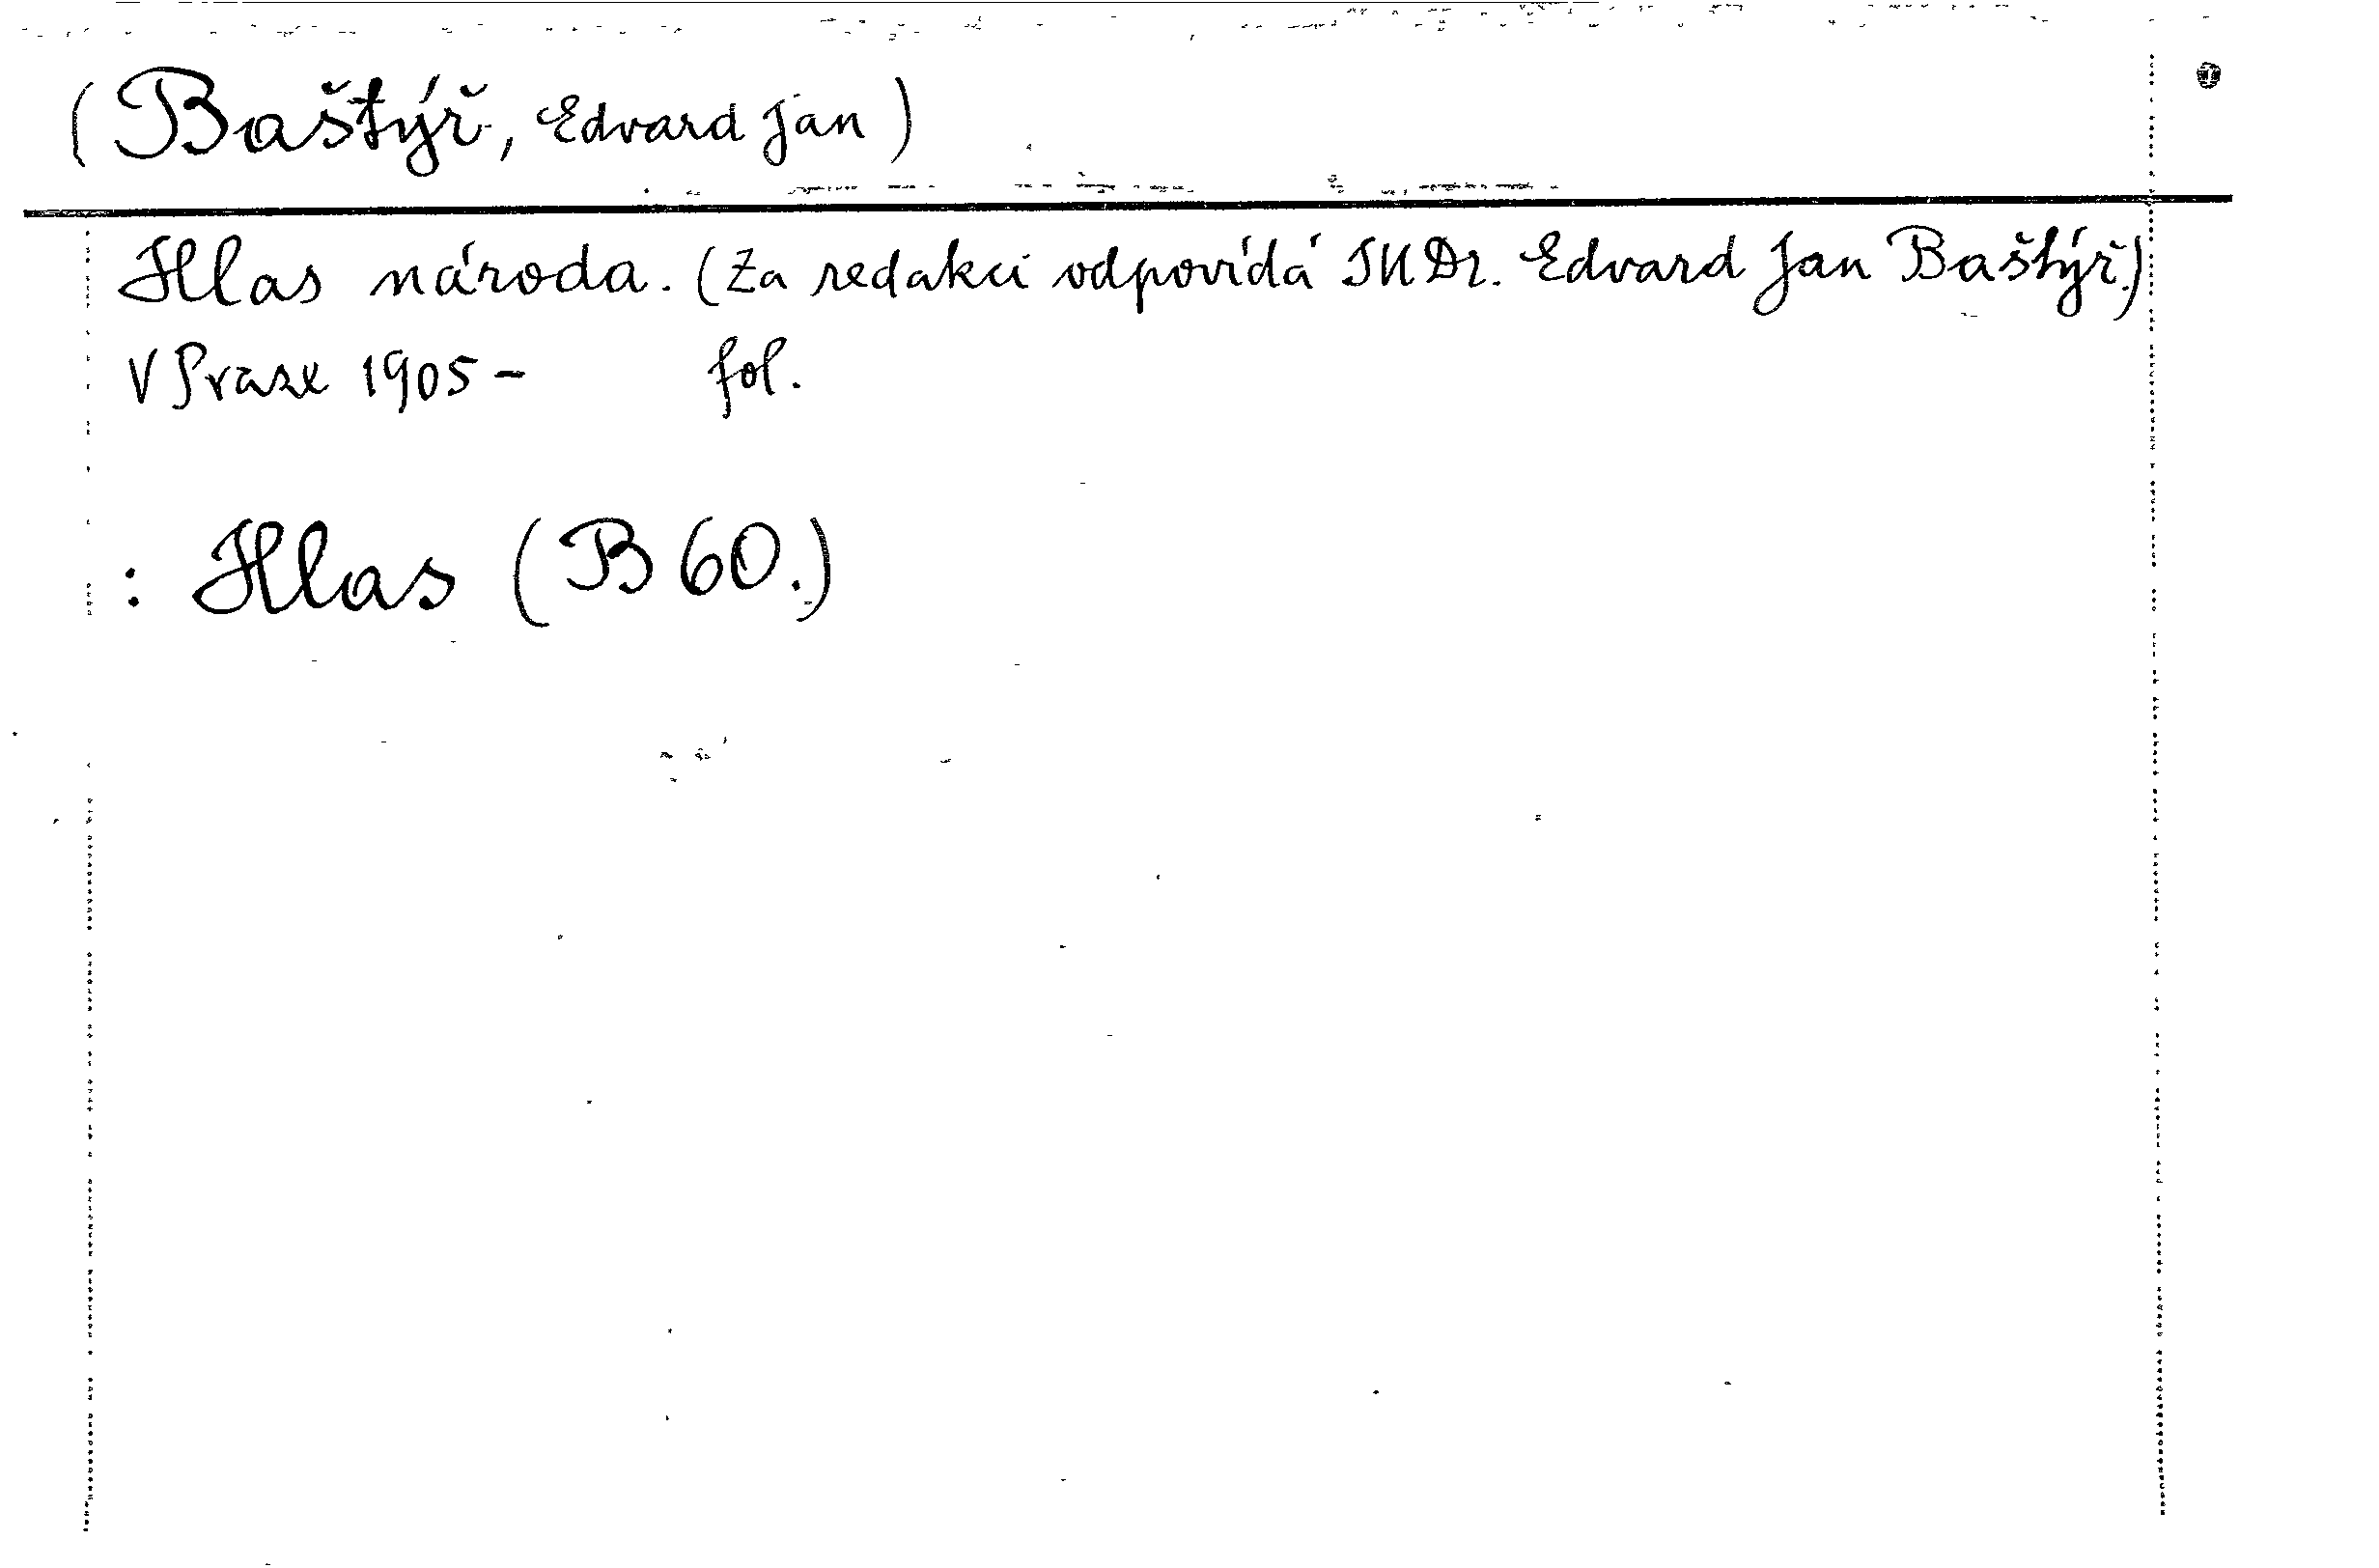 (Baštýř, Edvard Jan)
Hlas národa. (Za redakci odpovídá JUDr. Edvard Jan Baštýř.)
V Praze 1905- fol.
: Hlas (B 60.)